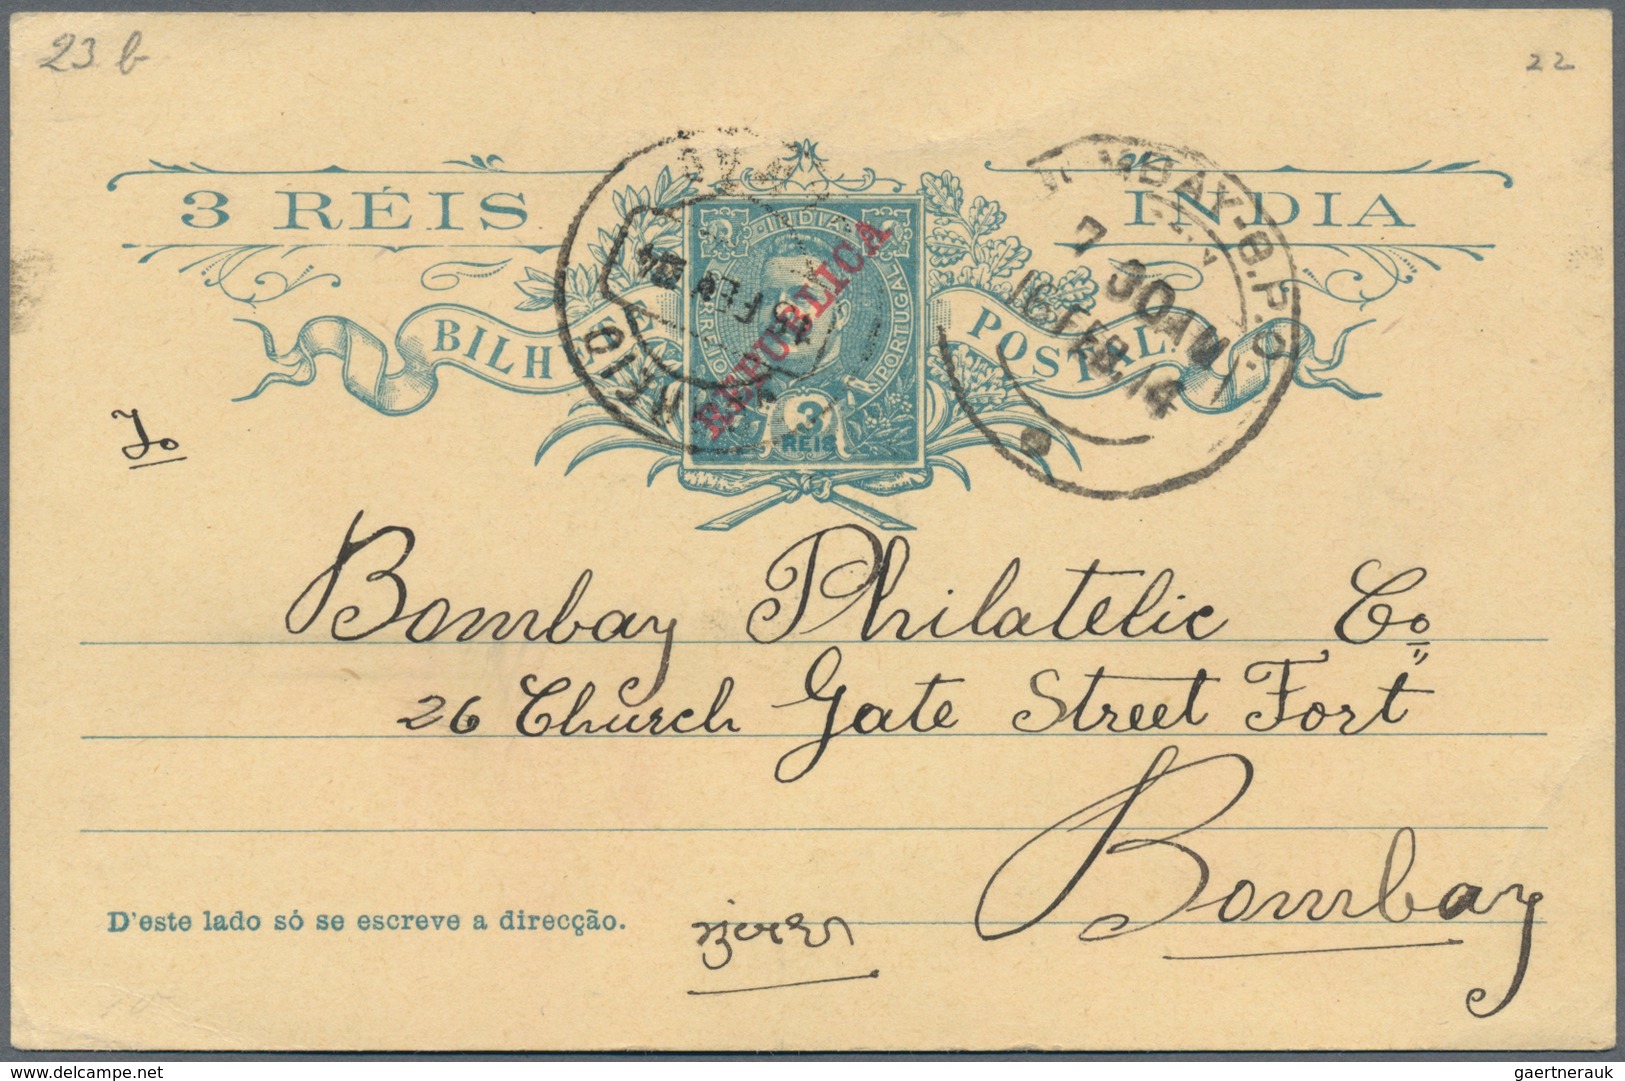 23 b
22
3 RÉIS
INDIA
BILHETE POSTAL
INDIA
CORREIO
PORTUGAL
REPUBLICA
3
REIS
15 FEV
BOMBAY.G.P.O.
7 30AM
16 FEB.14
To
Bombay Philatelic Co
26 Church Gate Street Fort
Bombay
D'este lado só se escreve a direcção.
gaertnerauk